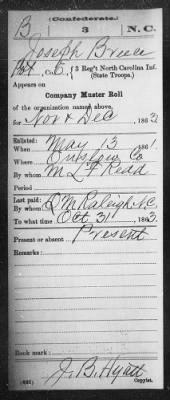 (Confederate.)
B 3 N.C.
Joseph
Pvt, Co. E, 3 Reg't North Carolina Inf.
(State Troops.)
Appears on
Company Muster Roll
of the organization named above,
for Nov & Dec, 1863.
Enlisted:
When May 13, 1861.
Where Onslow Co
By whom M L F Redd
Period
Last paid:
By whom Q M Raleigh N.C.
To what time Oct 31, 1863.
Present or absent Present
Remarks:
Book mark:
J. B. Hyatt
(642) Copyist.